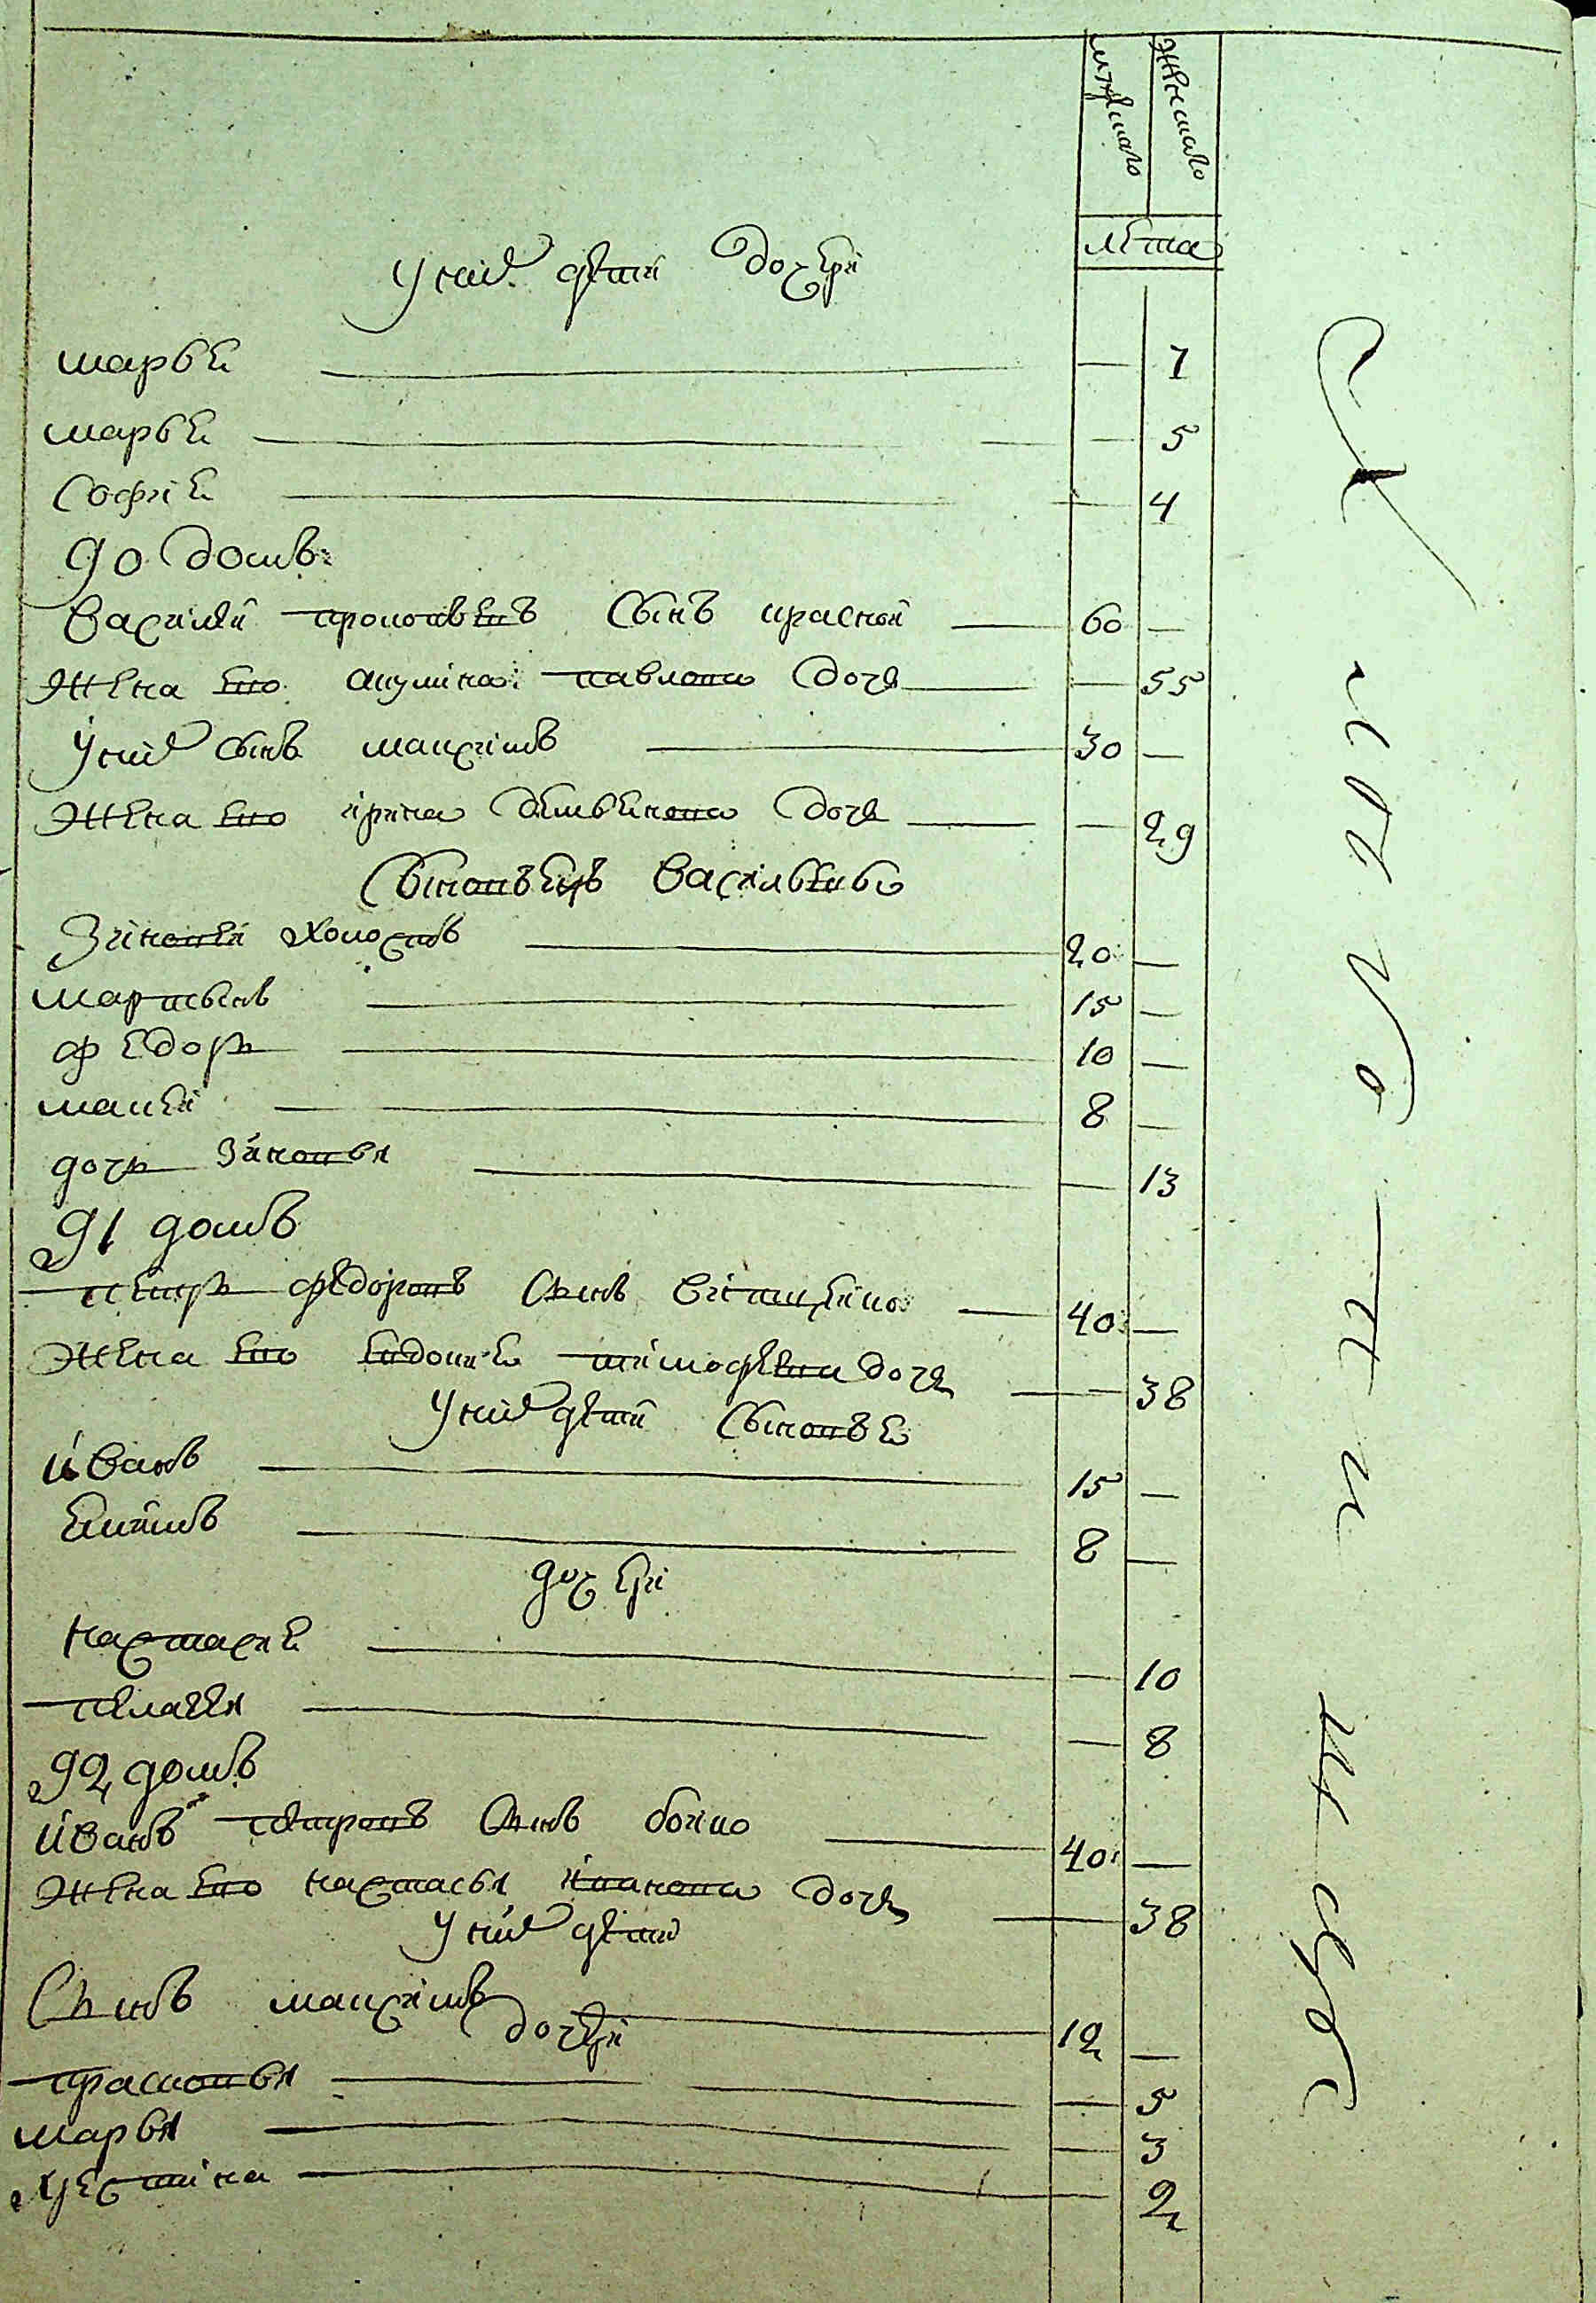 мужеска женска
лѣта
У нихъ дѣти дочери
марья 7
марья 5
София 4
90 домъ
Василий прокопьевъ сынъ красной 60 —
Жена его акулина павлова дочь — 55
У нихъ сынъ максимъ 30 —
Жена его ирина дементьева дочь — 29
Сыновья васильевы
Зиновей холостъ 20 —
мартынъ 15 —
федоръ 10 —
мокей 8 —
дочь Зиновья — 13
91 домъ
петръ федоровъ сынъ 40 —
Жена его евдокия тимофеева дочь — 38
У нихъ дѣти Сыновья
иванъ 15 —
екимъ 8 —
дочери
настасия — 10
пелагея — 8
92 домъ
иванъ петровъ сынъ бойко 40 —
Жена его настасья иванова дочь — 38
У нихъ дѣти
Сынъ максимъ 12 —
дочери
прасковья — 5
марья — 3
хрестина — 2